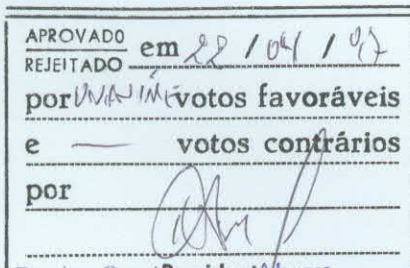 APROVADO
REJEITADO em 22 / 04 / 97
por UNANIME votos favoráveis
e — votos contrários
por
Presidente